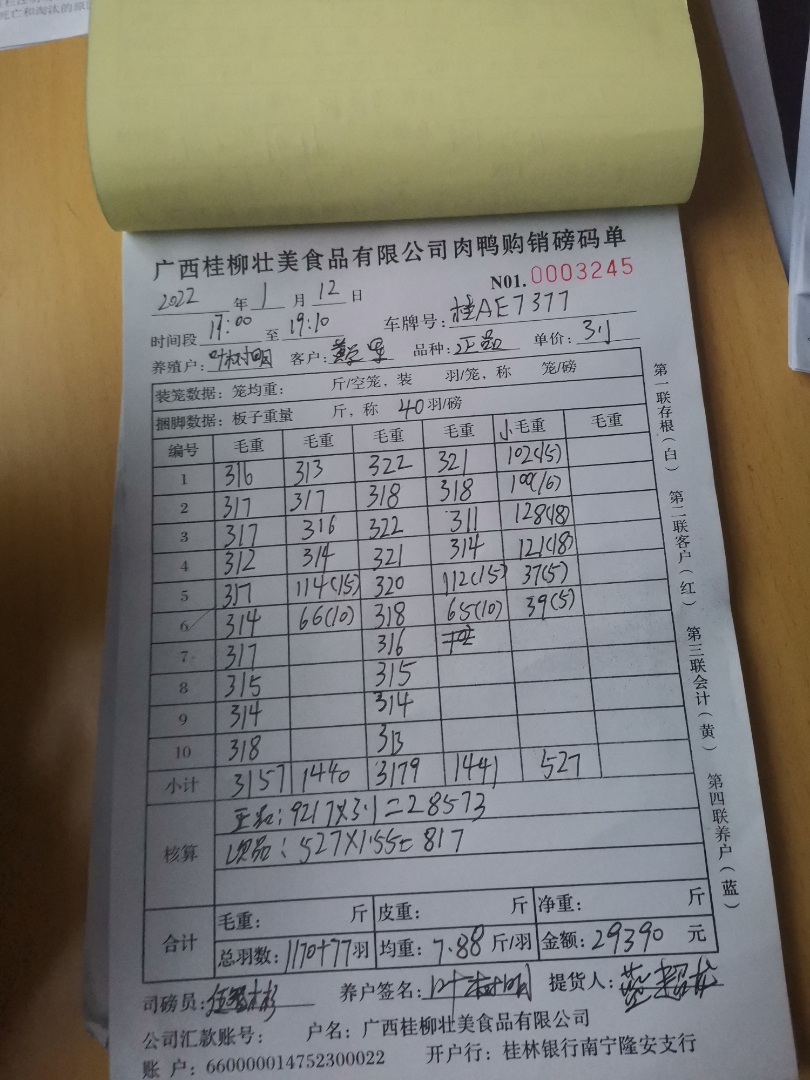 死亡和淘汰的原
广西桂柳壮美食品有限公司肉鸭购销磅码单
N01.0003245
2022 年 1 月 12 日
时间段 17:00 至 19:10 车牌号: 桂AE7377
养殖户: 叶树明 客户: 品种: 正品 单价: 3.1
装笼数据: 笼均重: 斤/空笼, 装 羽/笼, 称 笼/磅
捆脚数据: 板子重量 斤, 称 40 羽/磅
编号 毛重 毛重 毛重 毛重 小毛重 毛重
1 316 313 322 321 102(15)
2 317 317 318 318 100(16)
3 317 316 322 311 128(18)
4 312 314 321 314 121(18)
5 317 114(15) 320 112(15) 37(5)
6 314 66(10) 318 65(10) 39(5)
7 317 316
8 315 315
9 314 314
10 318 313
小计 3157 1440 3179 1441 527
核算
正品: 9217×3.1=28573
次品: 527×1.55=817
合计
毛重: 斤 皮重: 斤 净重: 斤
总羽数: 1170+77羽 均重: 7.88 斤/羽 金额: 29390 元
司磅员: 养户签名: 叶树明 提货人:
公司汇款账号: 户名: 广西桂柳壮美食品有限公司
账 户: 660000014752300022 开户行: 桂林银行南宁隆安支行
第一联存根(白) 第二联客户(红) 第三联会计(黄) 第四联养户(蓝)